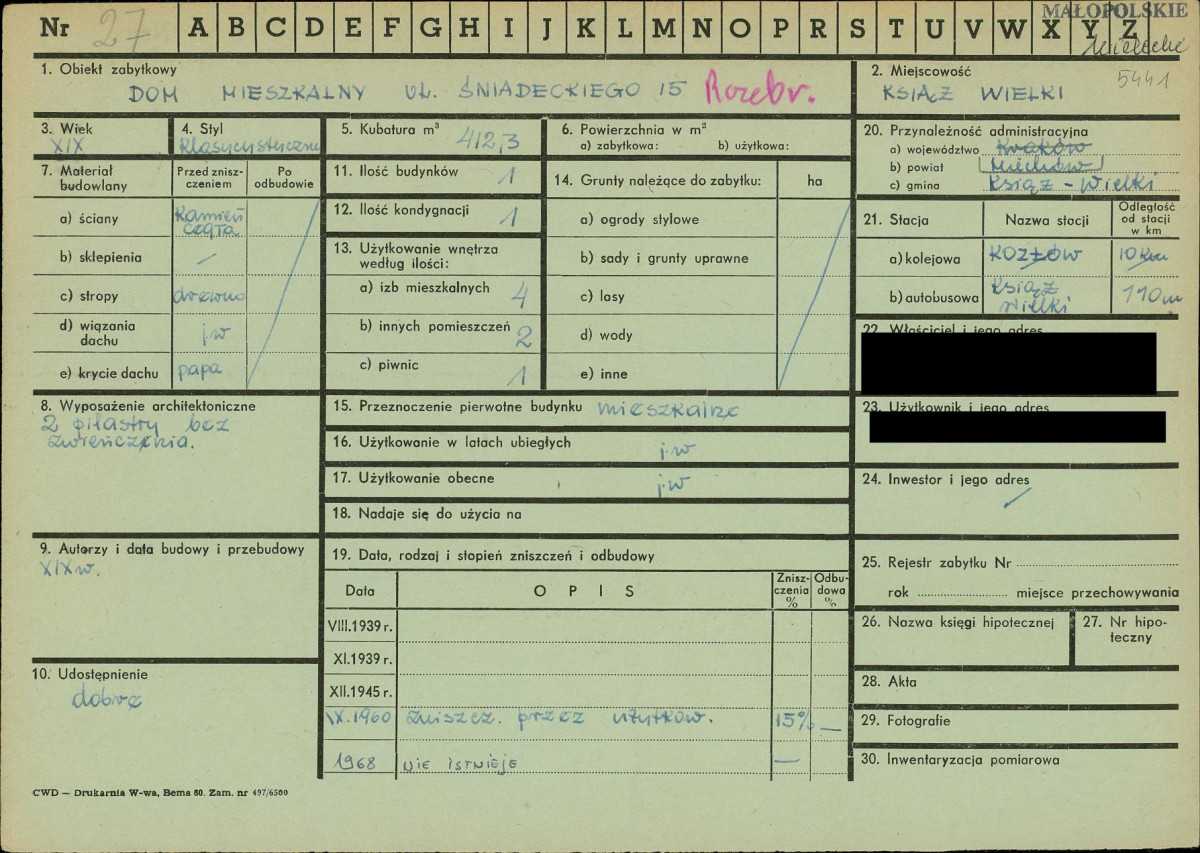 Nr 27 A B C D E F G H I J K L M N O P R S T U V W X Y Z
MAŁOPOLSKIE
5441
1. Obiekt zabytkowy
DOM MIESZKALNY UL. ŚNIADECKIEGO 15 Rozebr.
2. Miejscowość
KSIĄŻ WIELKI
3. Wiek
XIX
4. Styl
klasycystyczny
5. Kubatura m³
412,3
6. Powierzchnia w m²
a) zabytkowa: b) użytkowa:
20. Przynależność administracyjna
a) województwo Kraków
b) powiat Miechów
c) gmina Książ - Wielki
7. Materiał budowlany
Przed znisz-
czeniem
Po
odbudowie
a) ściany kamień
cegła
b) sklepienia –
c) stropy drewno
d) wiązania
dachu j.w
e) krycie dachu papa
11. Ilość budynków 1
12. Ilość kondygnacji 1
13. Użytkowanie wnętrza
według ilości:
a) izb mieszkalnych 4
b) innych pomieszczeń 2
c) piwnic 1
14. Grunty należące do zabytku: ha
a) ogrody stylowe
b) sady i grunty uprawne
c) lasy
d) wody
e) inne
21. Stacja Nazwa stacji Odległość
od stacji
w km
a) kolejowa KOZŁÓW 10 km
b) autobusowa Książ
Wielki 110 m
22. Właściciel i jego adres
23. Użytkownik i jego adres
8. Wyposażenie architektoniczne
2 pilastry bez
zwieńczenia.
15. Przeznoczenie pierwotne budynku mieszkalne
16. Użytkowanie w latach ubiegłych j.w
17. Użytkowanie obecne j.w
18. Nadaje się do użycia na
24. Inwestor i jego adres
9. Autorzy i data budowy i przebudowy
XIXw.
19. Data, rodzaj i stopień zniszczeń i odbudowy
Data OPIS Znisz-
czenia
% Odbu-
dowa
%
VIII.1939 r.
XI.1939 r.
XII.1945 r.
IX.1960 zniszcz. przez użytkow. 15% —
1968 nie istnieje —
25. Rejestr zabytku Nr
rok miejsce przechowywania
26. Nazwa księgi hipotecznej
27. Nr hipo-
teczny
10. Udostępnienie
dobre
28. Akta
29. Fotografie
30. Inwentaryzacja pomiarowa
CWD — Drukarnia W-wa, Bema 60. Zam. nr 497/6500